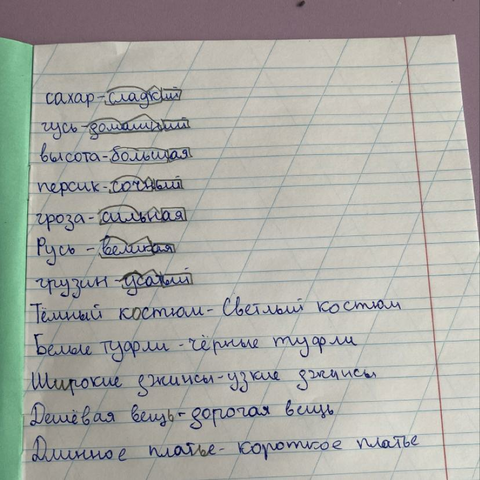 сахар-сладкий
гусь-домашний
высота-большая
персик-сочный
гроза-сильная
Русь - великая
грузин-усатый
Тёмный костюм- Светлый костюм
Белые туфли -чёрные туфли
Широкие джинсы-узкие джинсы
Дешёвая вещь-дорогая вещь
Длинное платье- короткое платье